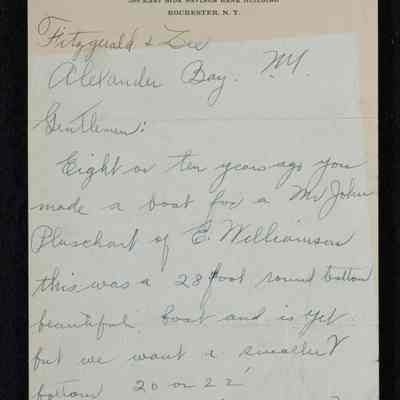 500 EAST SIDE SAVINGS BANK BUILDING
ROCHESTER, N. Y.
Fitzgerald & Lee
Alexander Bay. N.Y.
Gentlemen:
Eight or ten years ago you
made a boat for a Mr John
Pluschart of E. Williamson
this was a 28 foot round bottom
beautiful boat and is yet
but we want a smaller V
bottom 20 or 22'